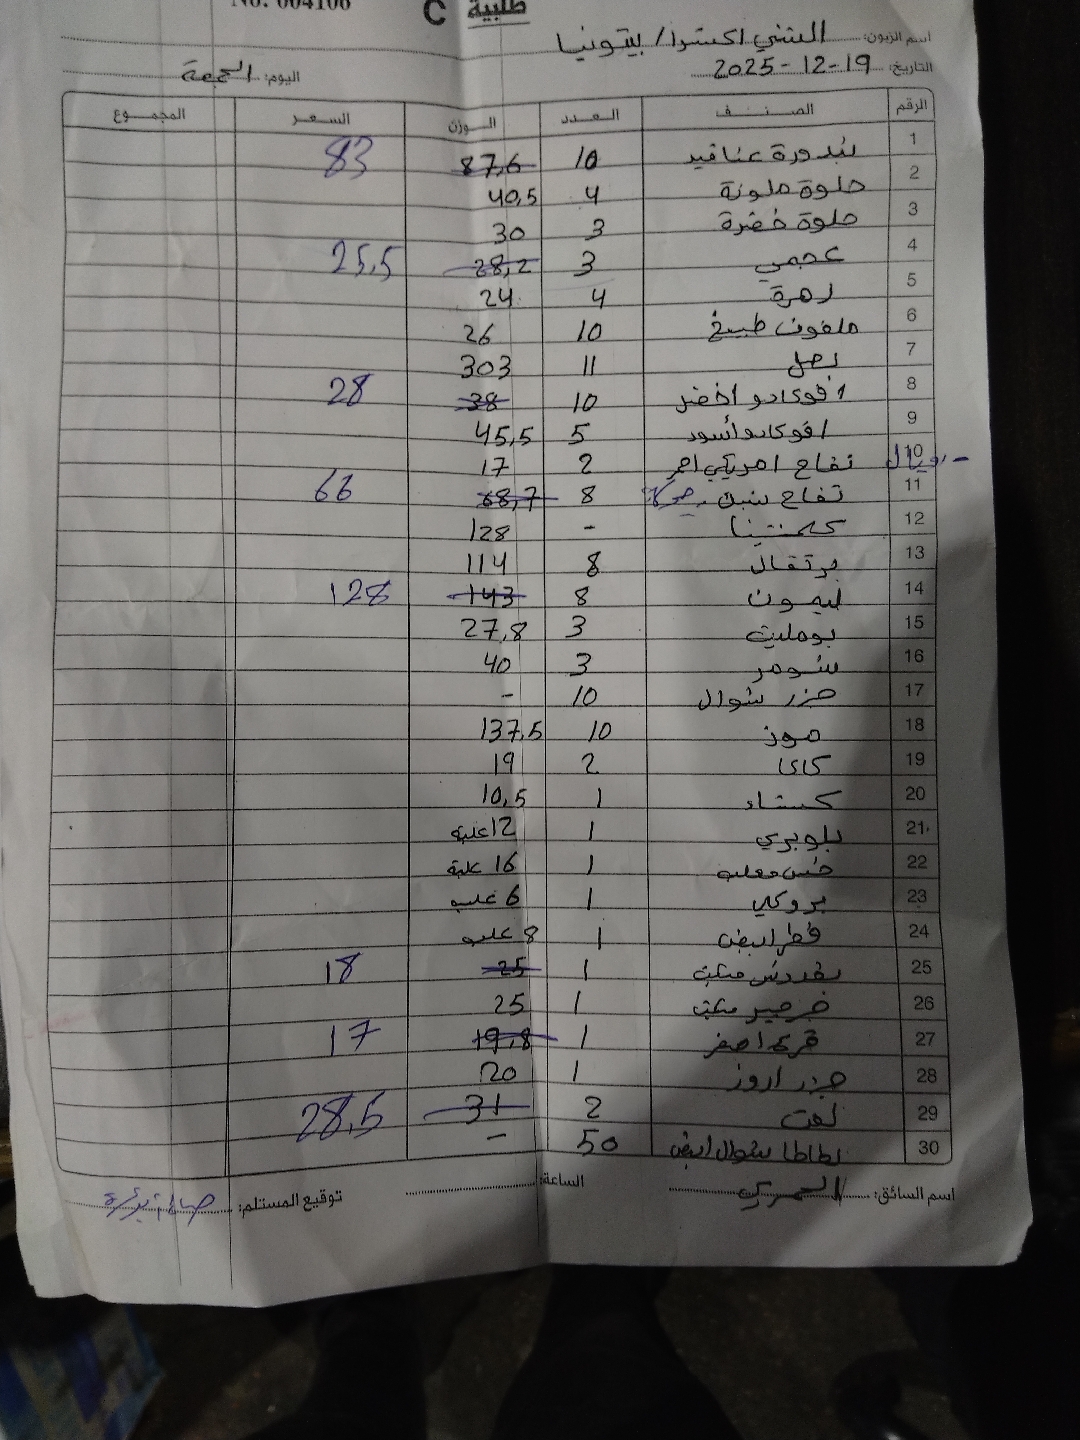 No. 004106
طلبية C
اسم الزبون: الشني اكسترا / بيتونيا
التاريخ: 19-12-2025 اليوم: الجمعة
الرقم الصنف العدد الوزن السعر المجموع
1 بندورة عناقيد 10 87,6 83
2 حلوة ملونة 4 40,5
3 حلوة خضرة 3 30
4 عجمي 3 28,2 25,5
5 زهرة 4 24
6 ملفوف طبيخ 10 26
7 بصل 11 303
8 افوكادو اخضر 10 38 28
9 افوكادو أسود 5 45,5
10 تفاح امريكي احمر 2 17 رويال -
11 تفاح سنبل 8 68,7 66
12 كلمنتينا - 128
13 برتقال 8 114
14 ليمون 8 143 128
15 بومليت 3 27,8
16 شومر 3 40
17 جزر شوال 10 -
18 موز 10 137,5
19 كاكا 2 19
20 كستناء 1 10,5
21 بلوبري 1 12 علبة
22 خس معلب 1 16 علبة
23 بروكلي 1 6 علب
24 فطر ابيض 1 8 علب
25 بقدونس مكبت 1 25 18
26 جرجير مكبت 1 25
27 قرع اصفر 1 19,8 17
28 جزر اروز 1 20
29 لفت 2 31 28,5
30 بطاطا شوال ابيض 50 -
اسم السائق: العمري الساعة: توقيع المستلم: